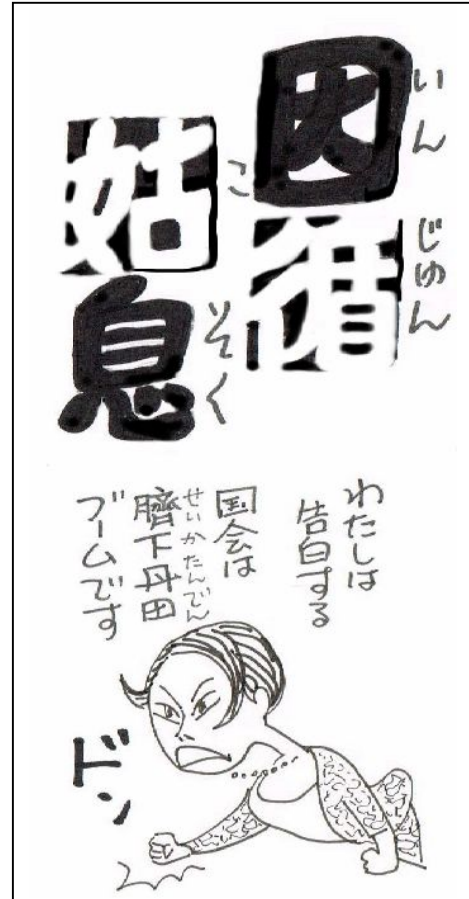 因循
いんじゅん
姑息
こそく
わたしは
告白する
国会は
せいかたんでん
臍下丹田
ブームです
ドン